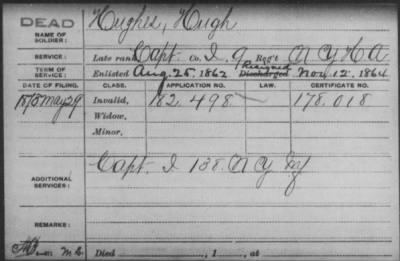 DEAD
NAME OF SOLDIER:
Hughes, Hugh
SERVICE:
Late rank Capt. Co. I, 9 Reg't N Y H A
TERM OF SERVICE:
Resigned
Enlisted Aug. 25, 1862 Discharged Nov. 12, 1864
DATE OF FILING. CLASS. APPLICATION NO. LAW. CERTIFICATE NO.
1873 May 29 Invalid, 182.498 178.018
Widow,
Minor,
ADDITIONAL SERVICES:
Capt. I 138 N Y Inf
REMARKS:
Died , 1 , at